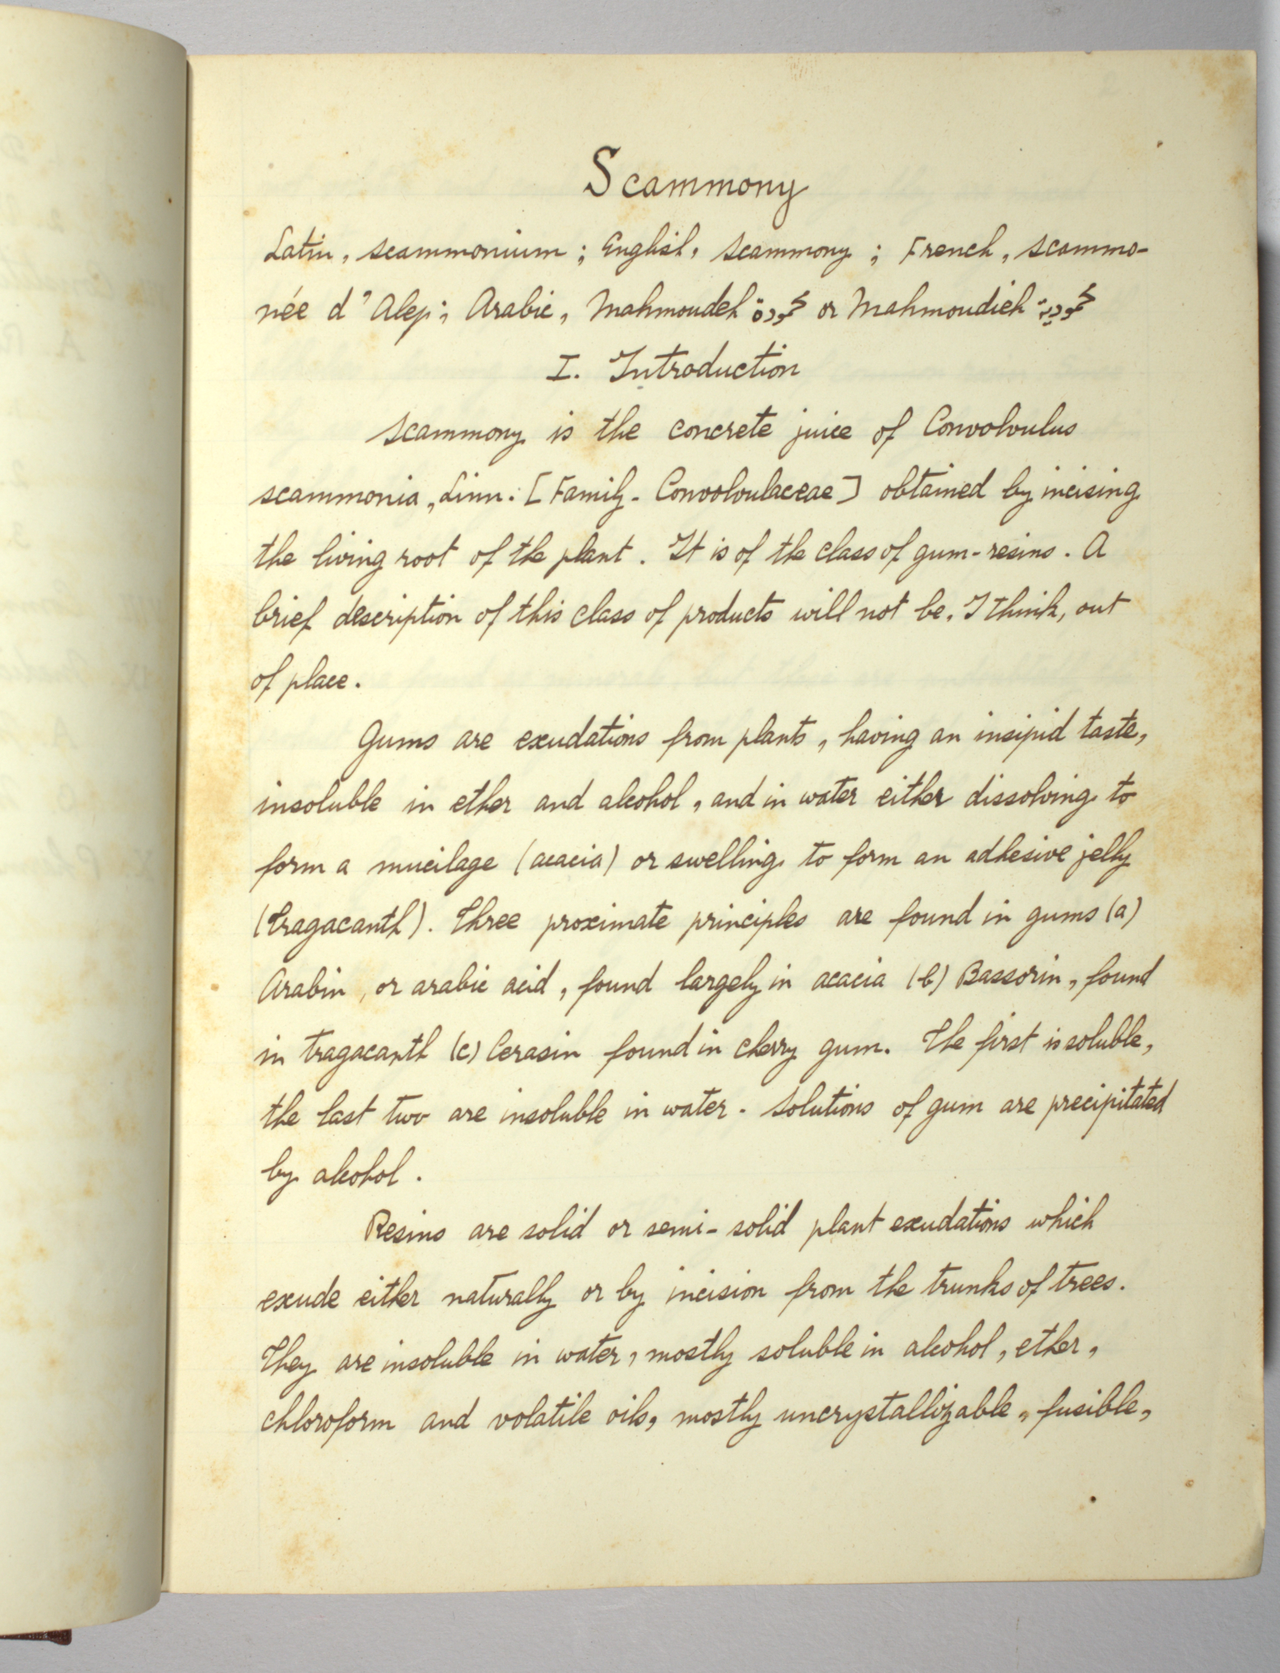 Scammony
Latin, scammonium; English, scammony; French, scammo-
née d'Alep; Arabic, Mahmoudeh محمودة or Mahmoudieh محمودية
I. Introduction
Scammony is the concrete juice of Convolvulus
scammonia, Linn. [Family - Convolvulaceae] obtained by incising
the living root of the plant. It is of the class of gum-resins. A
brief description of this class of products will not be, I think, out
of place.
Gums are exudations from plants, having an insipid taste,
insoluble in ether and alcohol, and in water either dissolving to
form a mucilage (acacia) or swelling to form an adhesive jelly
(Tragacanth). Three proximate principles are found in gums (a)
Arabin, or arabic acid, found largely in acacia (b) Bassorin, found
in tragacanth (c) Cerasin found in cherry gum. The first is soluble,
the last two are insoluble in water. Solutions of gum are precipitated
by alcohol.
Resins are solid or semi-solid plant exudations which
exude either naturally or by incision from the trunks of trees.
They are insoluble in water, mostly soluble in alcohol, ether,
chloroform and volatile oils, mostly uncrystallizable, fusible,